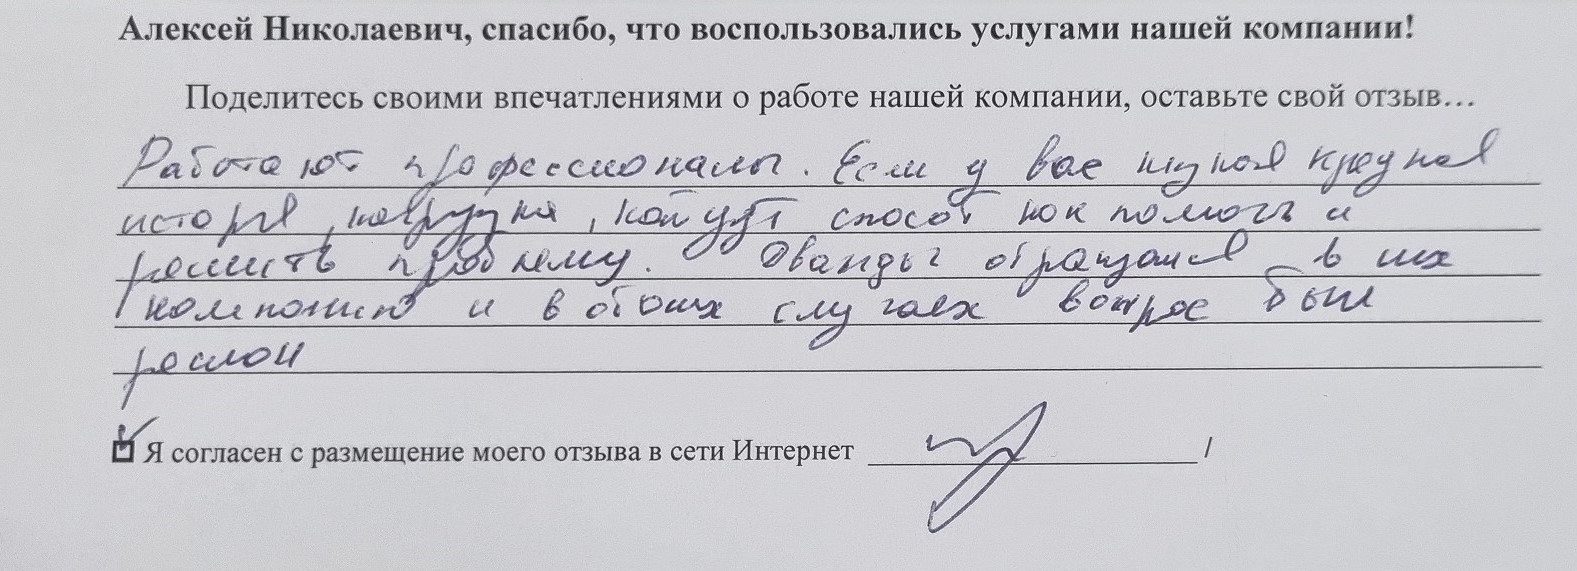 Алексей Николаевич, спасибо, что воспользовались услугами нашей компании!
Поделитесь своими впечатлениями о работе нашей компании, оставьте свой отзыв...
Работают профессионалы. Если у вас
история, нагрузка, найдут способ как помочь и
решить проблему. Дважды обращался в их
компанию и в обоих случаях вопрос был
решон
Я согласен с размещение моего отзыва в сети Интернет /